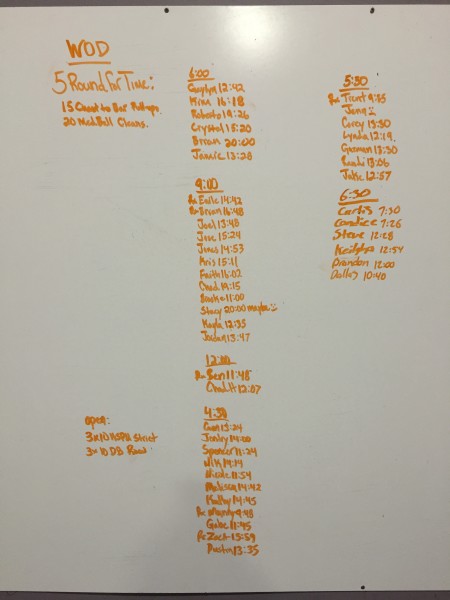 WOD
5 Round for Time:
15 Chest to Bar Pull-ups
20 Med Ball Cleans.
6:00
12:42
Kira 16:18
Roberto 19:26
Crystal 15:20
Brian 20:00
Jamie 13:28
9:00
Rx Earle 14:42
Rx Brian 16:48
Joel 13:48
Jose 15:24
Jonas 14:53
Kris 15:11
Faith 16:02
Chad 19:15
Brooke 11:00
Stacy 20:00 maybe
Kayla 12:35
Jordan 13:47
12:00
Rx Ben 11:48
Chad H 12:07
4:30
13:24
14:00
Spencer 11:24
Nik 14:14
Nicole 11:54
Melissa 14:42
Kathy 14:45
Rx Mandy 9:48
Gabe 11:45
Rx Zack 15:59
Dustin 13:35
5:30
Rx Trent 9:35
Jong
Corey 13:30
Lynda 12:19.
13:30
13:06
Jake 12:57
6:30
Curtis 7:30
Candice 7:26
Steve 12:28
12:54
Brandon 12:00
Dallas 10:40
open:
3x10 HSPU Strict
3x10 DB Row